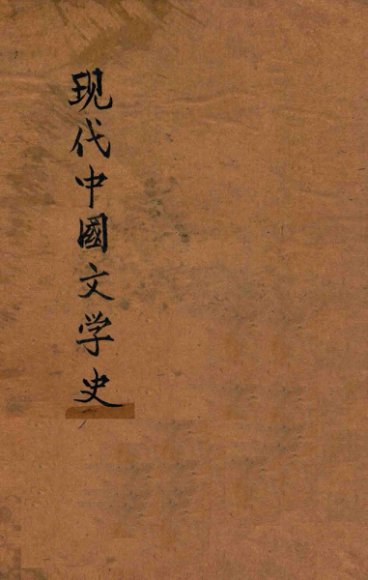 现代中國文学史